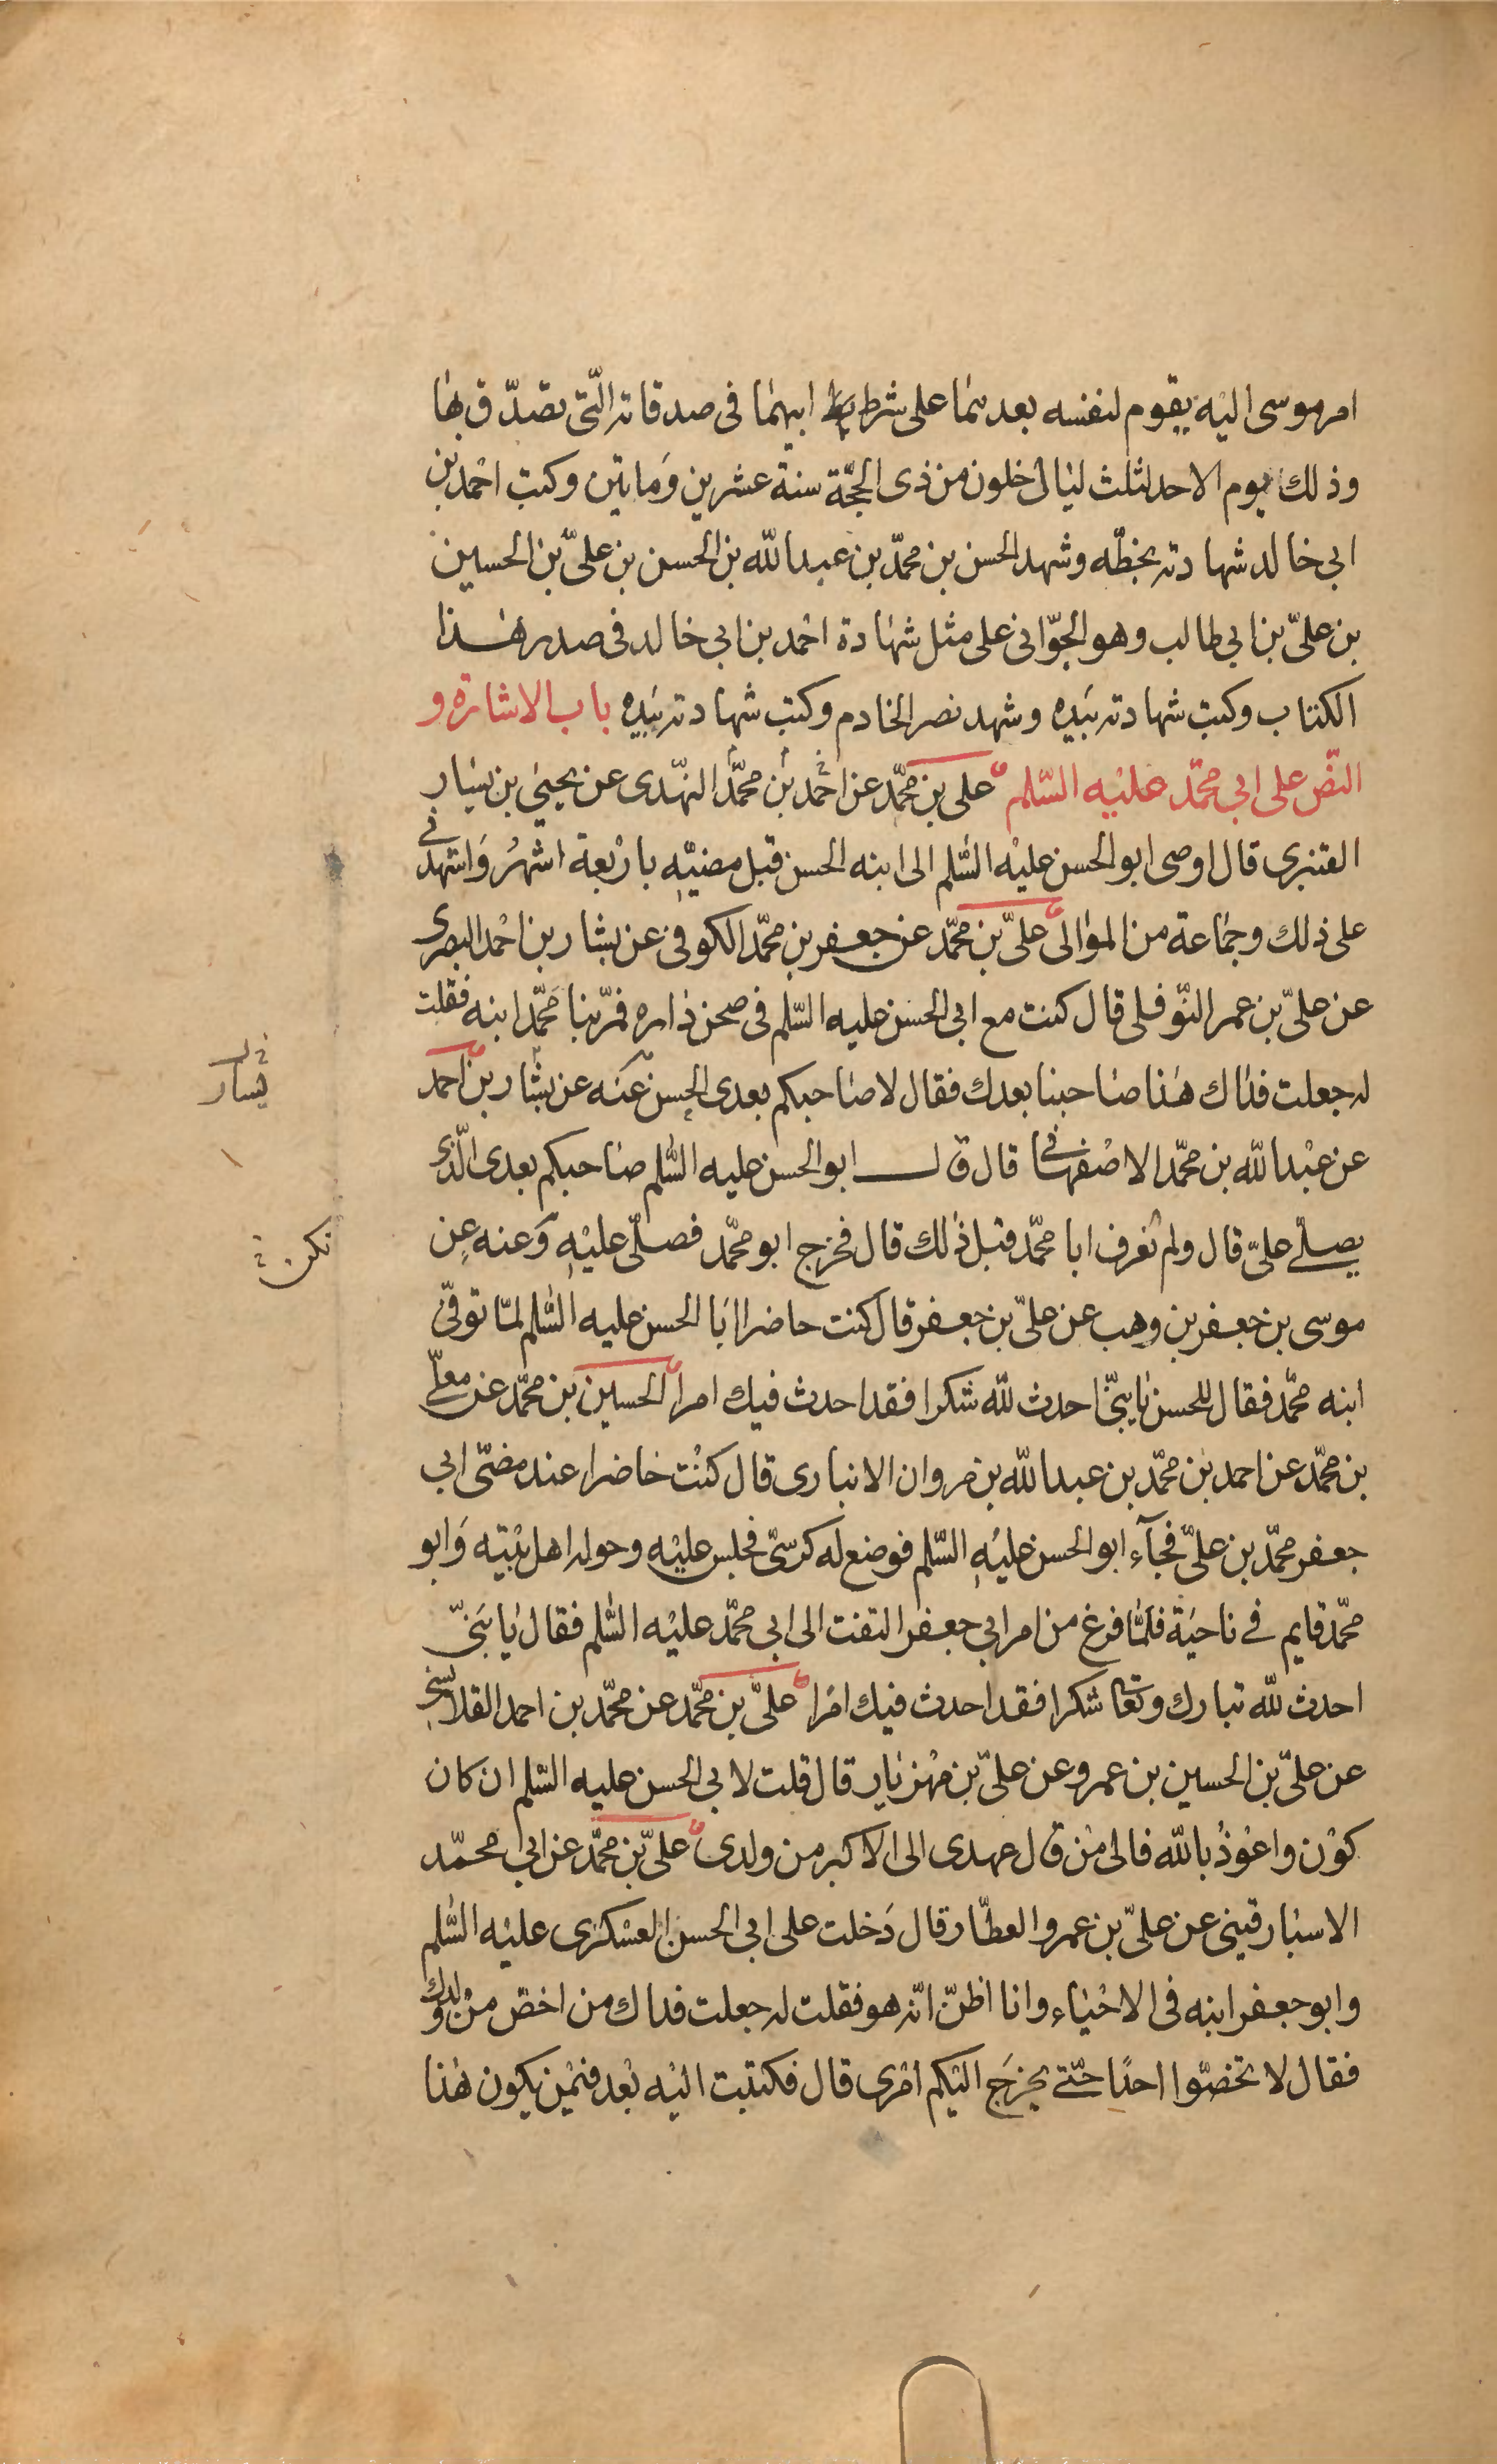 امر موسى اليه يقوم لنفسه بعدهما على شرط ابيهما فى صدقاته الّتى تصدّق بها
وذلك يوم الاحد لثلث ليال خلون من ذى الحجّة سنة عشرين وماتين وكتب احمد بن
ابى خالد شهادته بخطّه وشهد الحسن بن محمّد بن عبد الله بن الحسن بن علىّ بن الحسين
بن علىّ بن ابى طالب وهو الجوّانى على مثل شهادة احمد بن ابى خالد فى صدر هذا
الكتاب وكتب شهادته بيده وشهد نصر الخادم وكتب شهادته بيده باب الاشارة و
النصّ على ابى محمّد عليه السّلم على بن محمّد عن احمد بن محمّد النهدى عن يحيى بن يسار
القنبرى قال اوصى ابو الحسن عليه السّلم الى ابنه الحسن قبل مضيّه باربعة اشهر واشهدنى
على ذلك وجماعة من الموالى علىّ بن محمّد عن جعفر بن محمّد الكوفى عن بشار بن احمد البصرى
عن علىّ بن عمر النّوفلى قال كنت مع ابى الحسن عليه السّلم فى صحن داره فمرّ بنا محمّد ابنه فقلت
له جعلت فداك هذا صاحبنا بعدك فقال لا صاحبكم بعدى الحسن عنه عن بشّار بن احمد
عن عبد الله بن محمّد الاصفهانى قال قال ابو الحسن عليه السّلم صاحبكم بعدى الّذى
يصلّى علىّ قال ولم نعرف ابا محمّد قبل ذلك قال فخرج ابو محمّد فصلّى عليه وعنه عن
موسى بن جعفر بن وهب عن علىّ بن جعفر قال كنت حاضرا ابا الحسن عليه السّلم لمّا توفّى
ابنه محمّد فقال للحسن يابنىّ احدث لله شكرا فقد احدث فيك امرا الحسين بن محمّد عن معلّى
بن محمّد عن احمد بن محمّد بن عبد الله بن مروان الانبارى قال كنت حاضرا عند مضىّ ابى
جعفر محمّد بن علىّ فجآء ابو الحسن عليه السّلم فوضع له كرسىّ فجلس عليه وحوله اهل بيته وابو
محمّد قايم فى ناحية فلمّا فرغ من امر ابى جعفر التفت الى ابى محمّد عليه السّلم فقال يا بنىّ
احدث لله تبارك وتعا شكرا فقد احدث فيك امرا علىّ بن محمّد عن محمّد بن احمد القلانسى
عن علىّ بن الحسين بن عمرو عن علىّ بن مهزيار قال قلت لابى الحسن عليه السّلم ان كان
كون واعوذ بالله فالى من قال عهدى الى الاكبر من ولدى علىّ بن محمّد عن ابى محمّد
الاسبارقينى عن علىّ بن عمرو العطّار قال دخلت على ابى الحسن العسكرى عليه السّلم
وابو جعفر ابنه فى الاحياء وانا اظنّ انّه هو فقلت له جعلت فداك من اخصّ من ولدك
فقال لا تخصّوا احدا حتّى يخرج اليكم امرى قال فكتبت اليه بعد فيمن يكون هذا
يسار
نكن